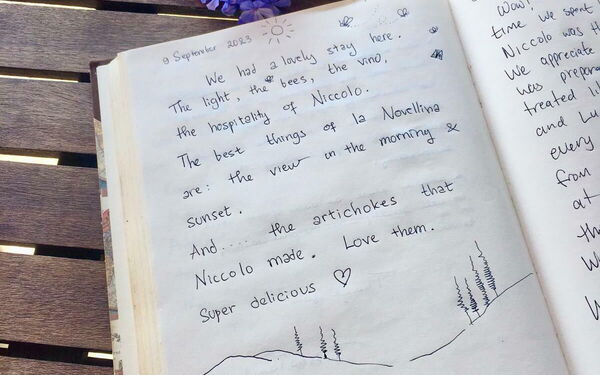 9 September 2023
We had a lovely stay here.
The light, the bees, the vino,
the hospitality of Niccolo.
The best things of la Novellina
are: the view in the morning &
sunset.
And.... the artichokes that
Niccolo made. Love them.
Super delicious ♡
Wow!
time we spent
Niccolo was th
We appreciate
was prepar
treated li
and Lu
every
from
at
th
W